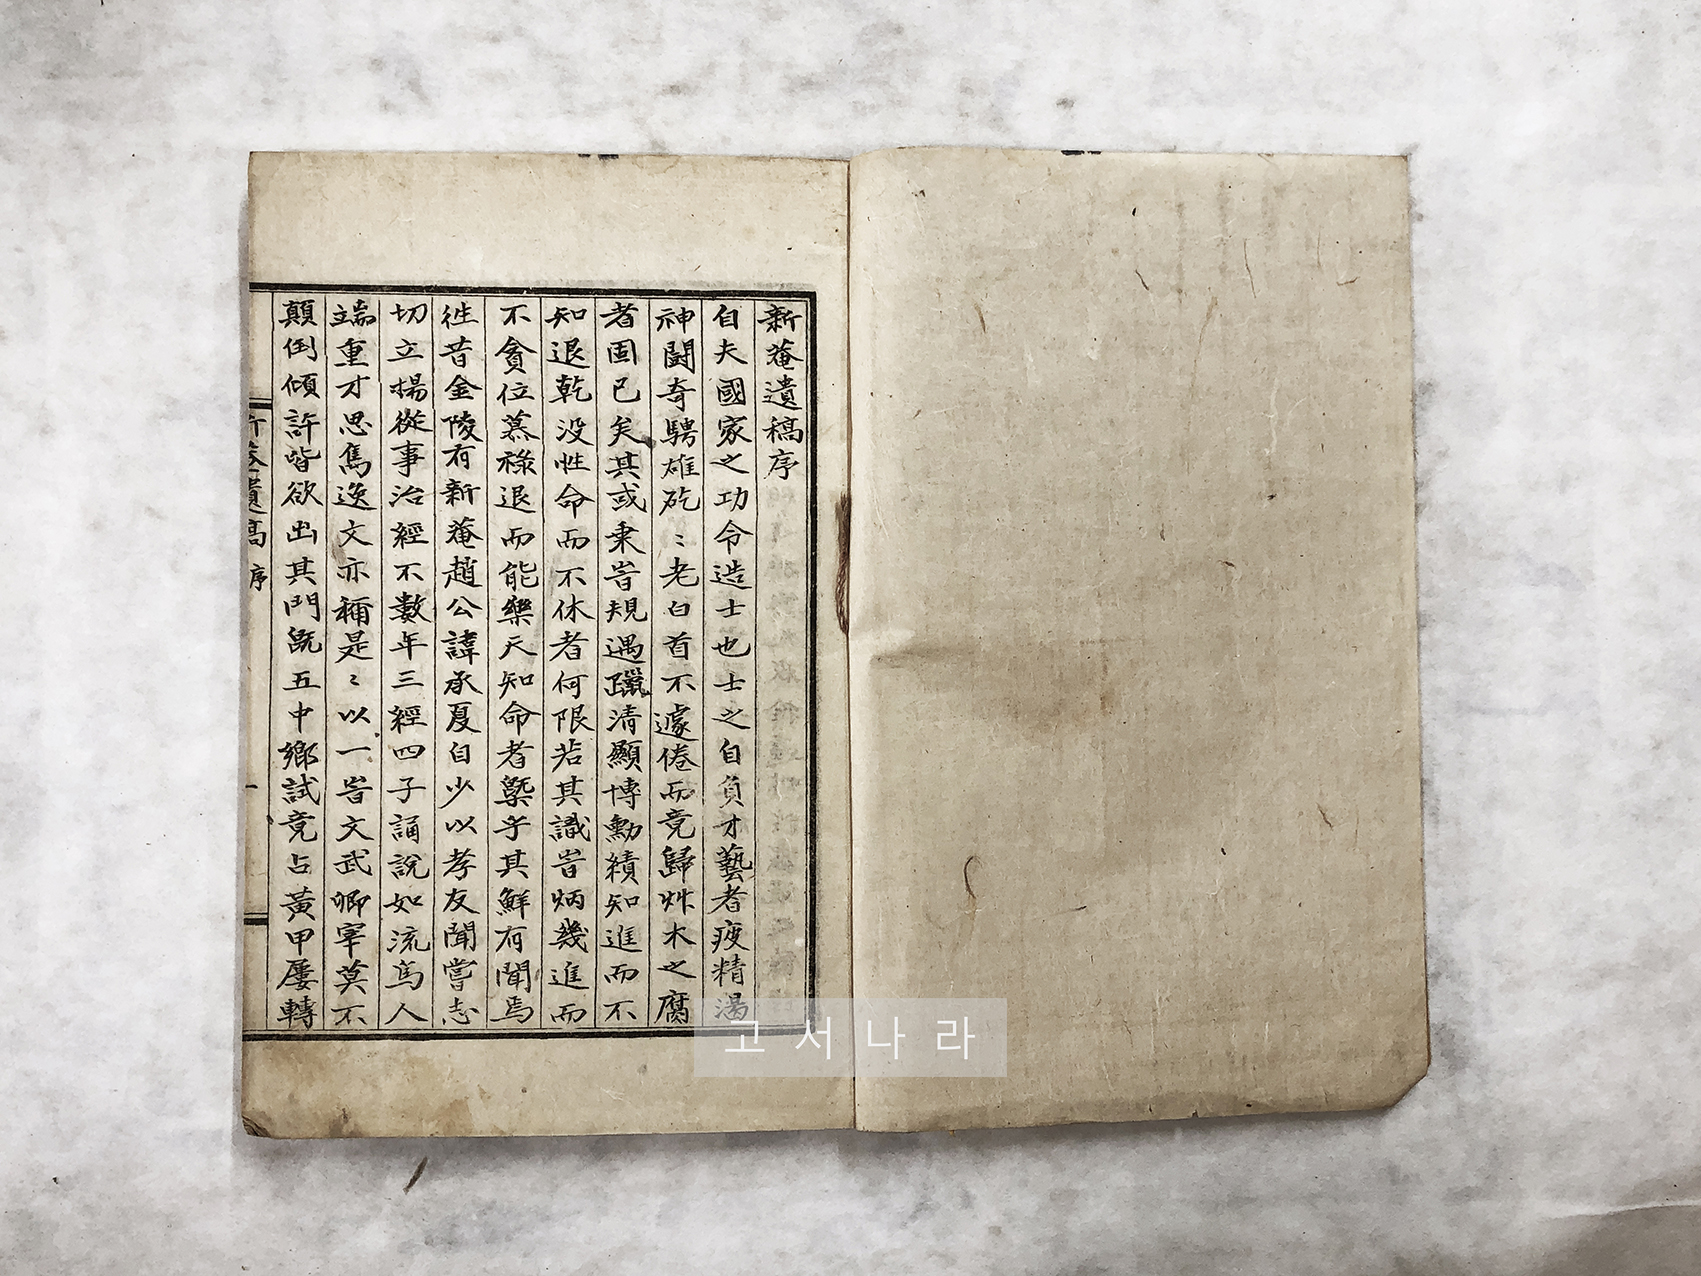 新菴遺稿序
自夫國家之功令造士也士之自負才藝者疲精湯
神鬪奇騁雄矻〻老白首不遽倦而竟歸艸木之腐
者固已矣其或秉旹規遇躐清顯博勳績知進而不
知退乾没性命而不休者何限若其識旹炳幾進而
不貪位慕祿退而能樂天知命者槩乎其鮮有聞焉
徃昔金陵有新菴趙公諱承夏自少以孝友聞嘗志
切立揚從事治經不數年三經四子誦說如流爲人
端重才思雋逸文亦稱是〻以一旹文武卿宰莫不
顛倒傾許皆欲出其門旣五中鄕試竟占黃甲屢轉
新菴遺稿 序
一
고서나라